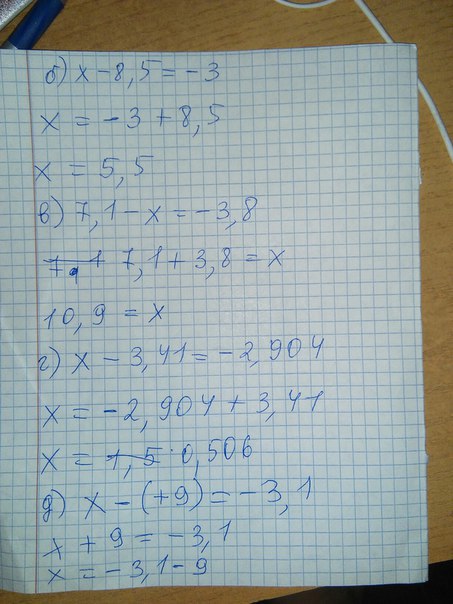 б) x - 8,5 = -3
x = -3 + 8,5
x = 5,5
в) 7,1 - x = -3,8
7,1 + 3,8 = x
10,9 = x
г) x - 3,41 = -2,904
x = -2,904 + 3,41
x = 0,506
д) x - (+9) = -3,1
x + 9 = -3,1
x = -3,1 - 9